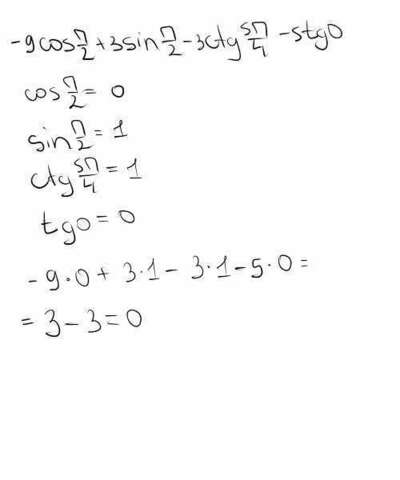 -9cos π/2 + 3sin π/2 - 3ctg 5π/4 - 5tg0
cos π/2 = 0
sin π/2 = 1
ctg 5π/4 = 1
tg0 = 0
-9·0 + 3·1 - 3·1 - 5·0 =
= 3 - 3 = 0